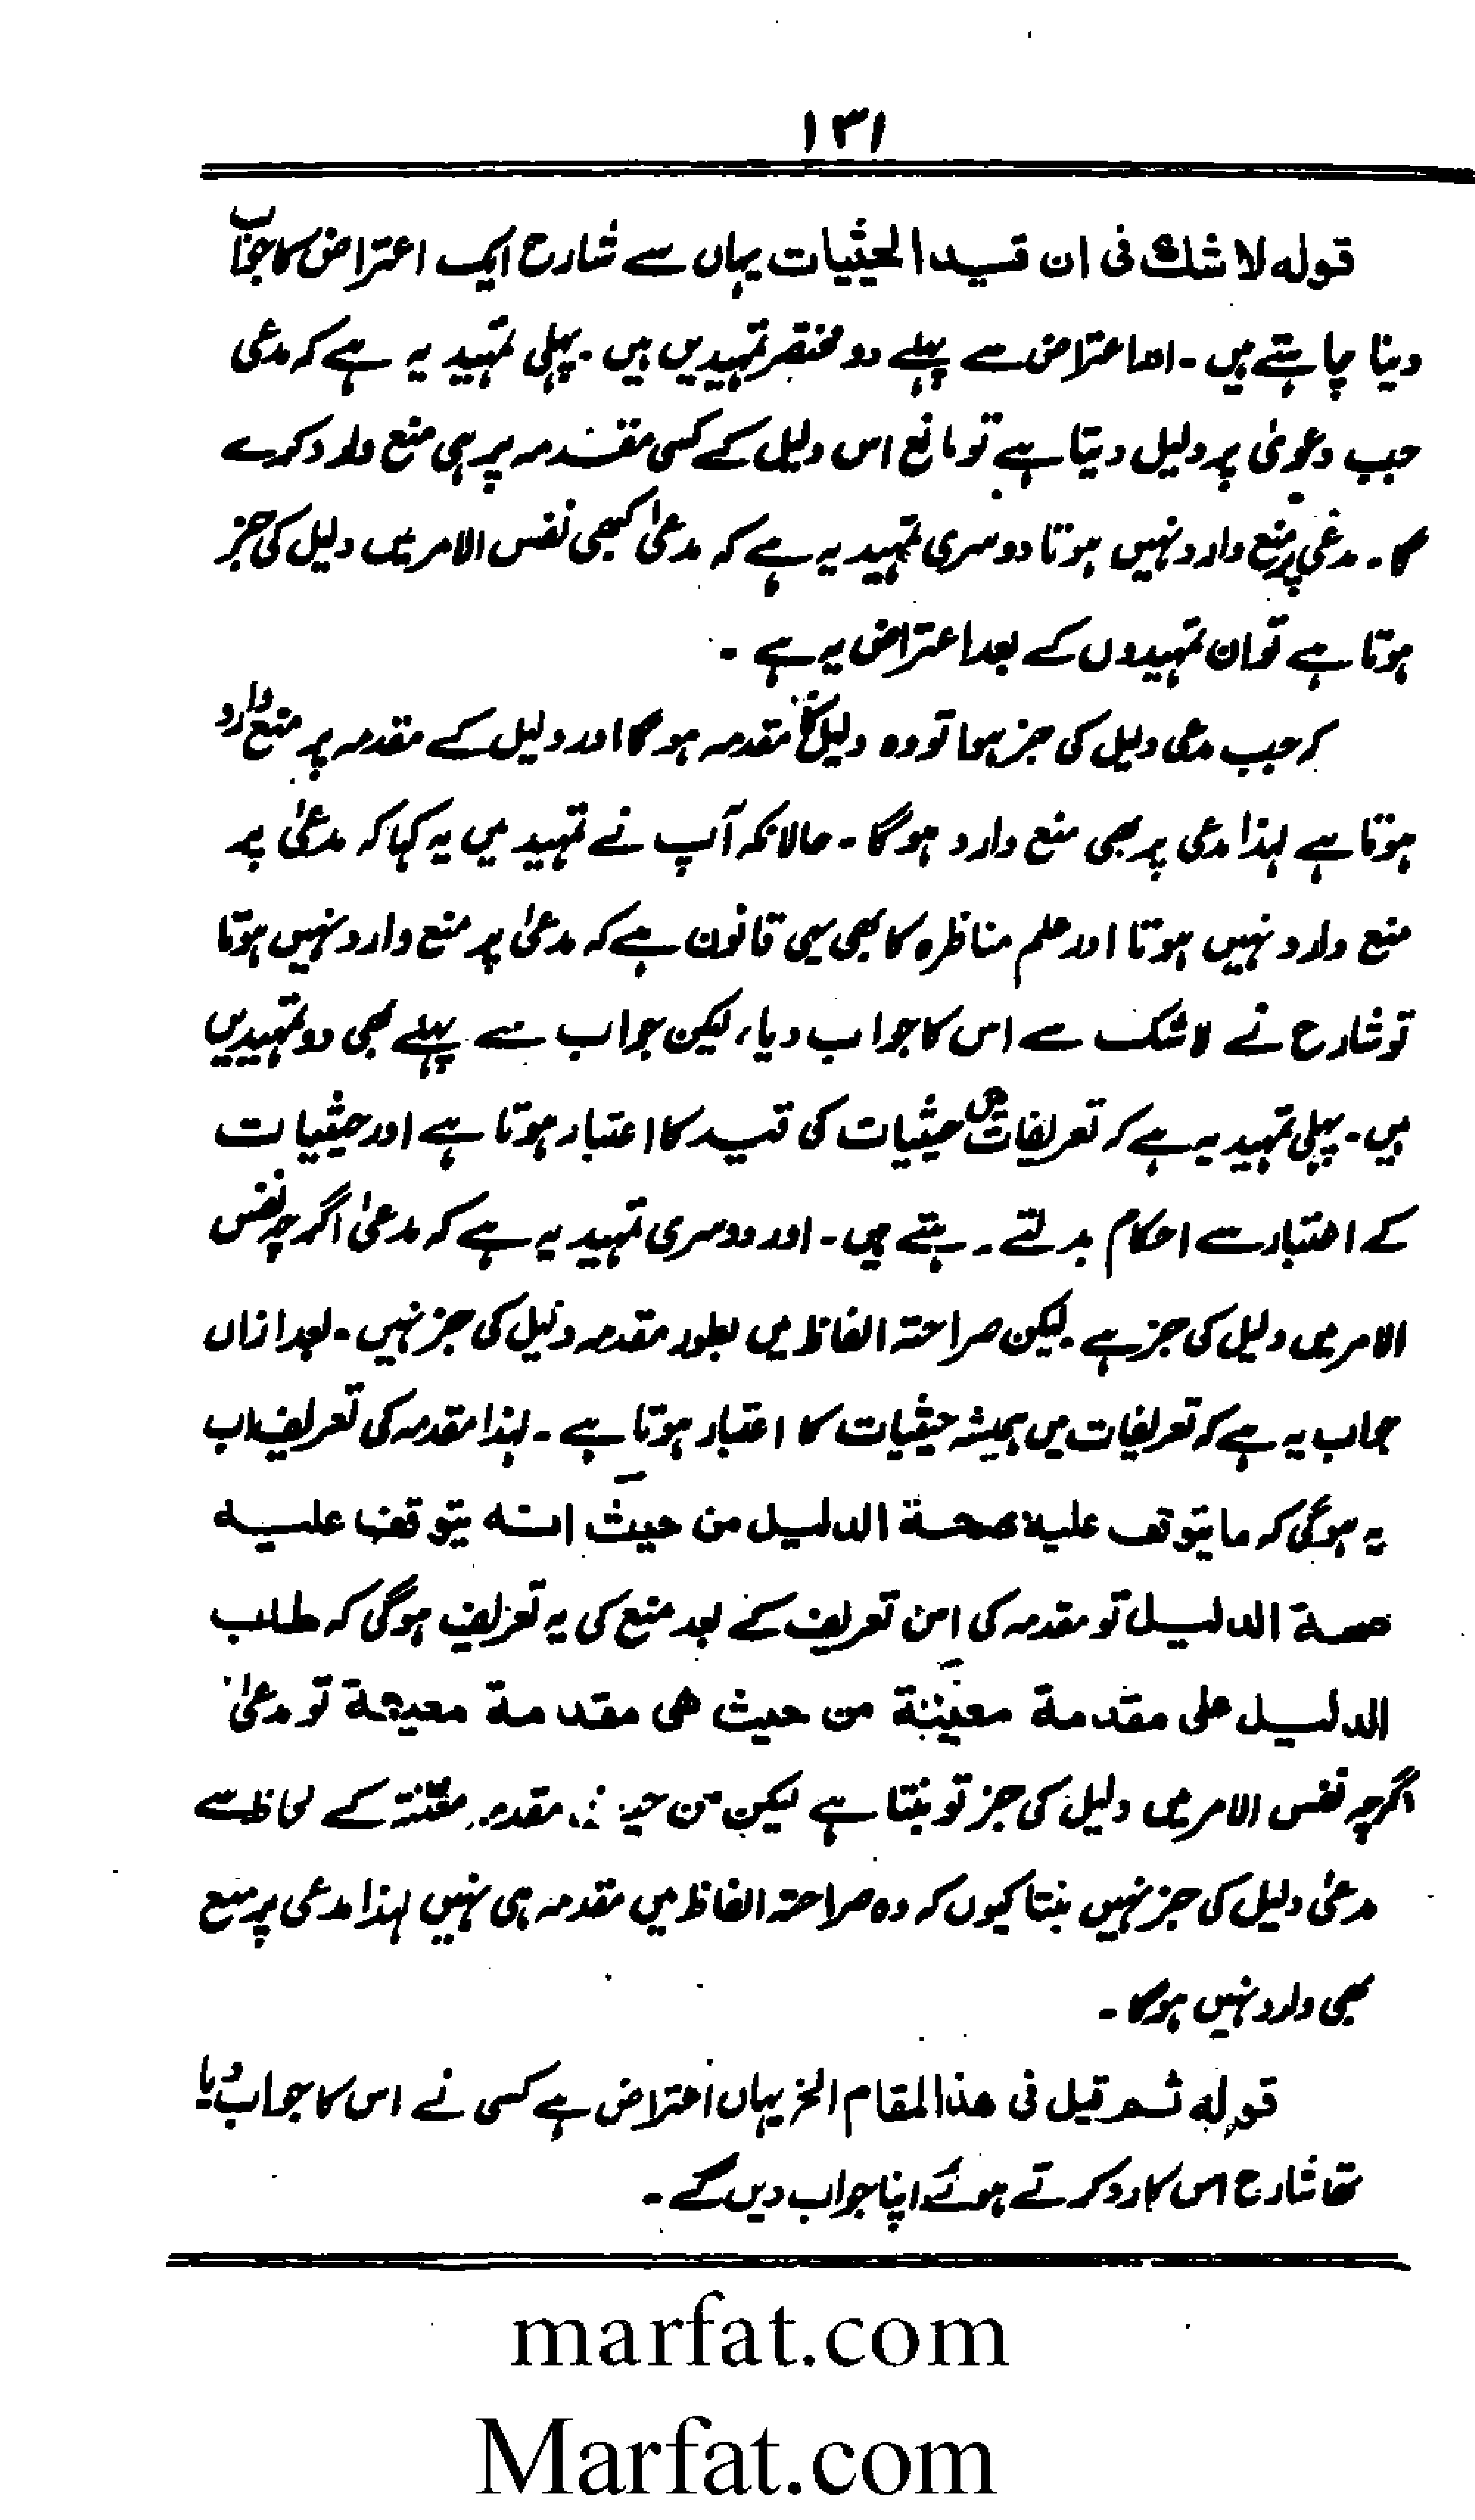 ١٣١
قوله لا شك فی ان قید الحیثیات یہاں سے شارح ایک اعتراض کا جواب
دینا چاہتے ہیں۔ اور اعتراض سے پہلے دو مختصر تمہیدیں ہیں۔ پہلی تمہید یہ ہے کہ مدعی
جب دعویٰ پر دلیل دیتا ہے تو مانع اس دلیل کے کسی مقدمہ پر ہی منع وارد کرے
گا۔ مدعیٰ پر منع وارد نہیں ہوتا دوسری تمہید یہ ہے کہ مدعیٰ کبھی نفس الامر میں دلیل کی جز
ہوتا ہے تو ان تمہیدوں کے بعد اعتراض یہ ہے۔
کہ جب مدعی دلیل کی جز ہوا تو وہ دلیل کا مقدمہ ہوگا اور دلیل کے مقدمہ پر منع وارد
ہوتا ہے لہذا مدعی پر بھی منع وارد ہوگا۔ حالانکہ آپ نے تمہید میں یہ کہا کہ مدعیٰ پر
منع وارد نہیں ہوتا اور علم مناظرہ کا بھی یہی قانون ہے کہ مدعیٰ پر منع وارد نہیں ہوتا
تو شارح نے لاشک سے اس کا جواب دیا، لیکن جواب سے پہلے بھی دو تمہیدیں
ہیں۔ پہلی تمہید یہ ہے کہ تعریفات میں حیثیات کی قید کا اعتبار ہوتا ہے اور حیثیات
کے اعتبار سے احکام بدلتے رہتے ہیں۔ اور دوسری تمہید یہ ہے کہ مدعیٰ اگرچہ نفس
الامر میں دلیل کی جز ہے۔ لیکن صراحۃ الفاظ میں بطور مقدمہ دلیل کی جز نہیں۔ بعد ازاں
جواب یہ ہے کہ تعریفات میں ہمیشہ حیثیات کا اعتبار ہوتا ہے۔ لہذا مقدمہ کی تعریف اب
یہ ہوگی کہ ما يتوقف عليه صحة الدليل من حيث انه يتوقف عليه
صحة الدليل تو مقدمہ کی اس تعریف کے بعد منع کی یہ تعریف ہوگی کہ طلب
الدليل على مقدمة معينة من حيث هى مقدمة معينة تو مدعیٰ
اگرچہ نفس الامر میں دلیل کی جز تو بنتا ہے لیکن من حیث مقدمہ معیّنۃ کے لحاظ سے
مدعیٰ دلیل کی جز نہیں بنتا کیوں کہ وہ صراحۃ الفاظ میں مقدمہ ہی نہیں لہذا مدعی پر منع
بھی وارد نہیں ہوگا۔
قوله ثم قيل فى هذا المقام الخ یہاں اعتراض ہے کسی نے اس کا جواب دیا
تھا شارح اس کا رد کرتے ہوئے اپنا جواب دیں گے۔
marfat.com
Marfat.com